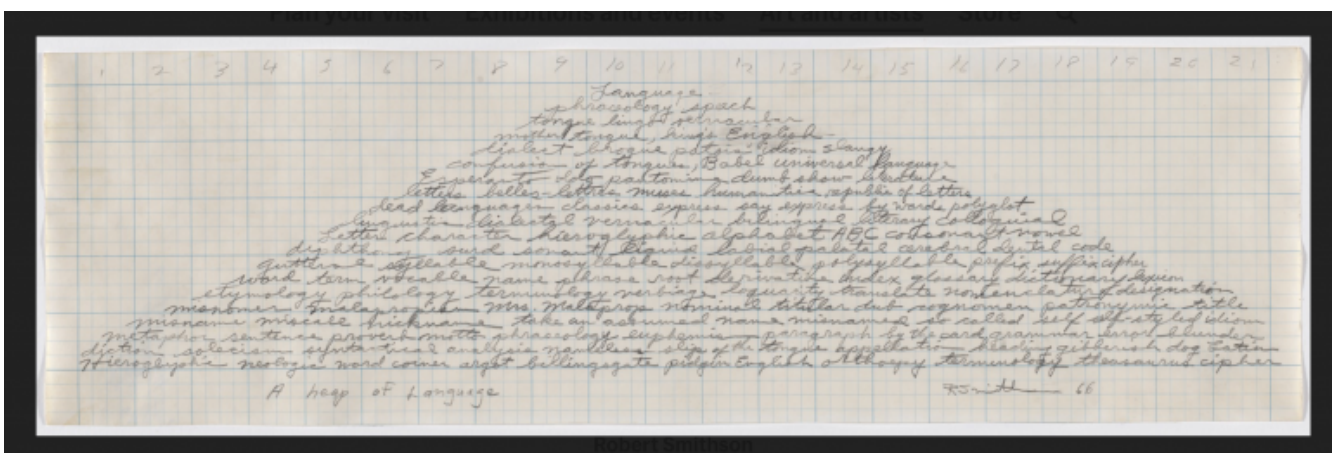 Plan your visit Exhibitions and events Art and artists Store
1 2 3 4 5 6 7 8 9 10 11 12 13 14 15 16 17 18 19 20 21
Language
phraseology speech
tongue lingo vernacular
mother tongue, king's English
dialect brogue patois idiom slangy
confusion of tongues, Babel universal language
Esperanto pantomime dumb show literature
letters belles-lettres muses humanities republic of letters
dead languages classics express say express by words polyglot
linguistic dialectal vernacular bilingual literary colloquial
Letter character hieroglyphic alphabet ABC consonant vowel
diphthong surd sonant liquid labial palatal cerebral dental code
guttural syllable monosyllable dissyllable polysyllable prefix suffix cipher
word term vocable name phrase root derivative index glossary dictionary lexicon
etymology philology terminology verbiage translate nomenclature designation
misnomer malaproprism Mrs. Malaprop nominal titular dub cognomen patronymic title
misname miscall nickname take an assumed name misnamed so called self styled idiom
metaphor sentence proverb motto phraseology euphemism paragraph by the card grammar
diction solecism syntax analysis nameless gibberish dog Latin
Hieroglyphic neologic word coiner argot billingsgate pidgin English terminology thesaurus cipher
A heap of Language
RSmith 66
Robert Smithson